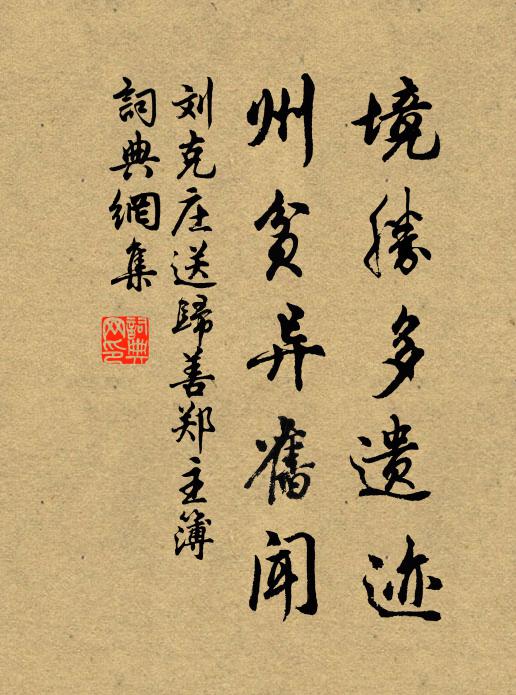 境勝多遗迹
州贫异舊闻
刘克庄送歸善郑主簿
詞典網集
詞典網印